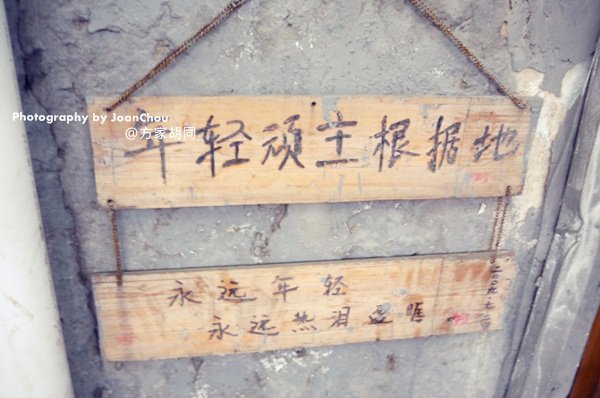 Photography by JoanChou
@方家胡同
年轻顽主根据地
永远年轻
永远热泪盈眶
二〇〇九.七.二